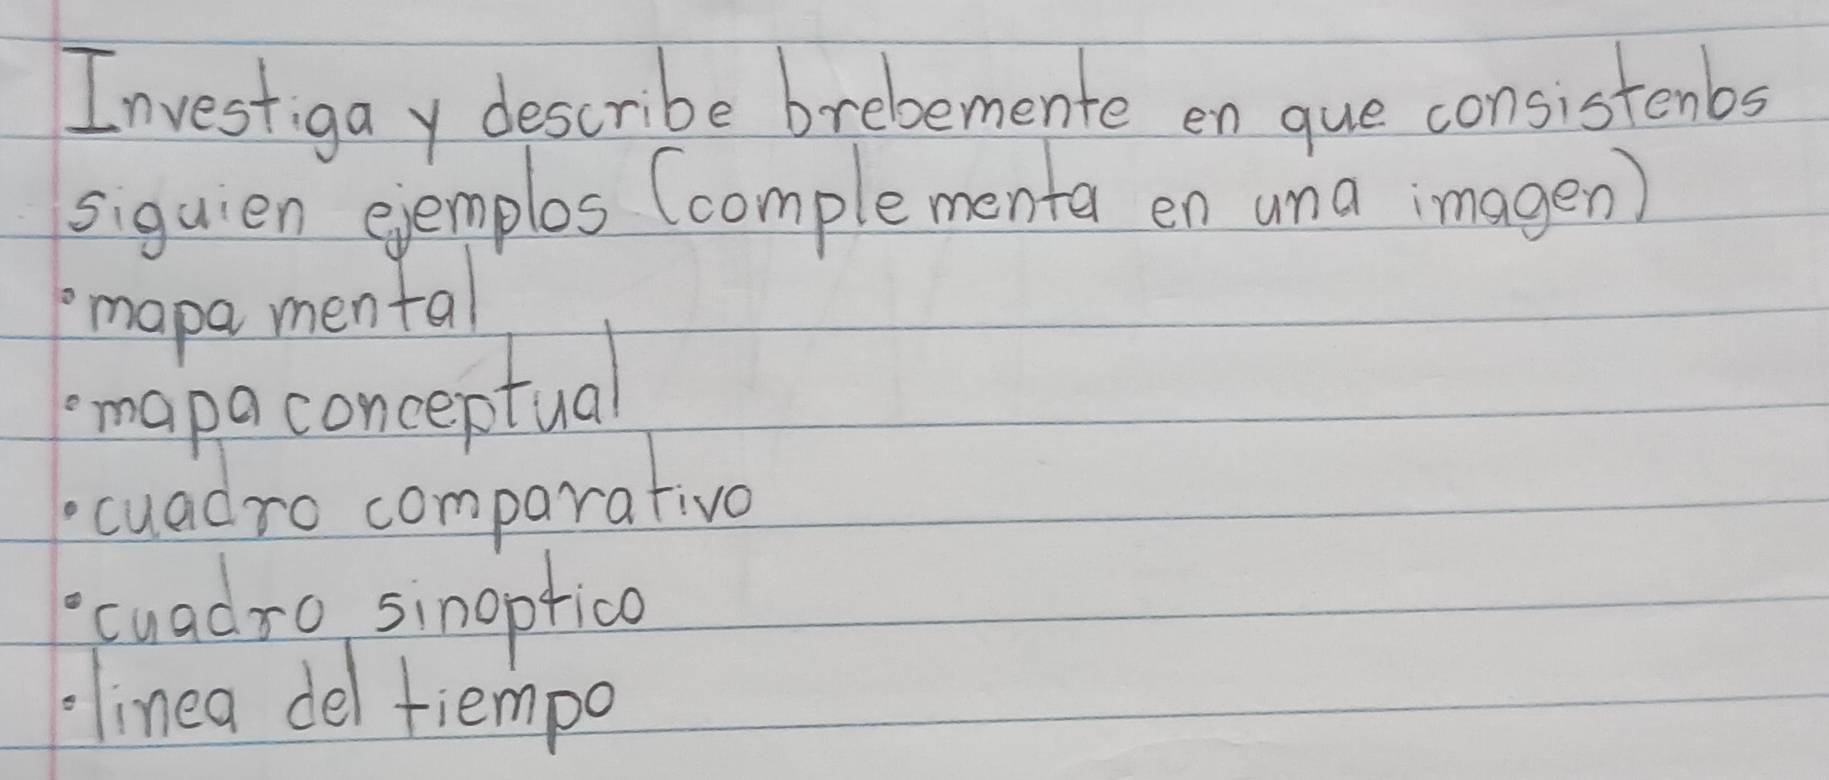 Investiga y describe brebemente en que consisten los
siguien ejemplos (complementa en una imagen)
• mapa mental
• mapa conceptual
• cuadro comparativo
• cuadro sinoptico
• linea del tiempo